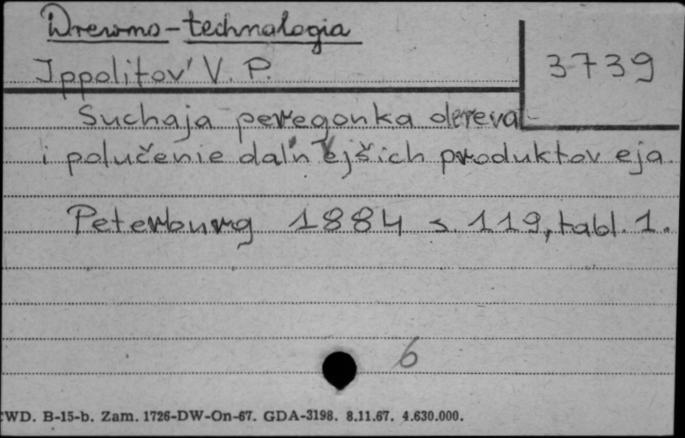 Drewno-technologia
Ippolitov' V. P.
3739
Suchaja peregonka dereva
i polučenie dal'nejšich produktov eja.
Peterburg 1884 s. 119, tabl. 1.
6
CWD. B-15-b. Zam. 1726-DW-On-67. GDA-3198. 8.11.67. 4.630.000.